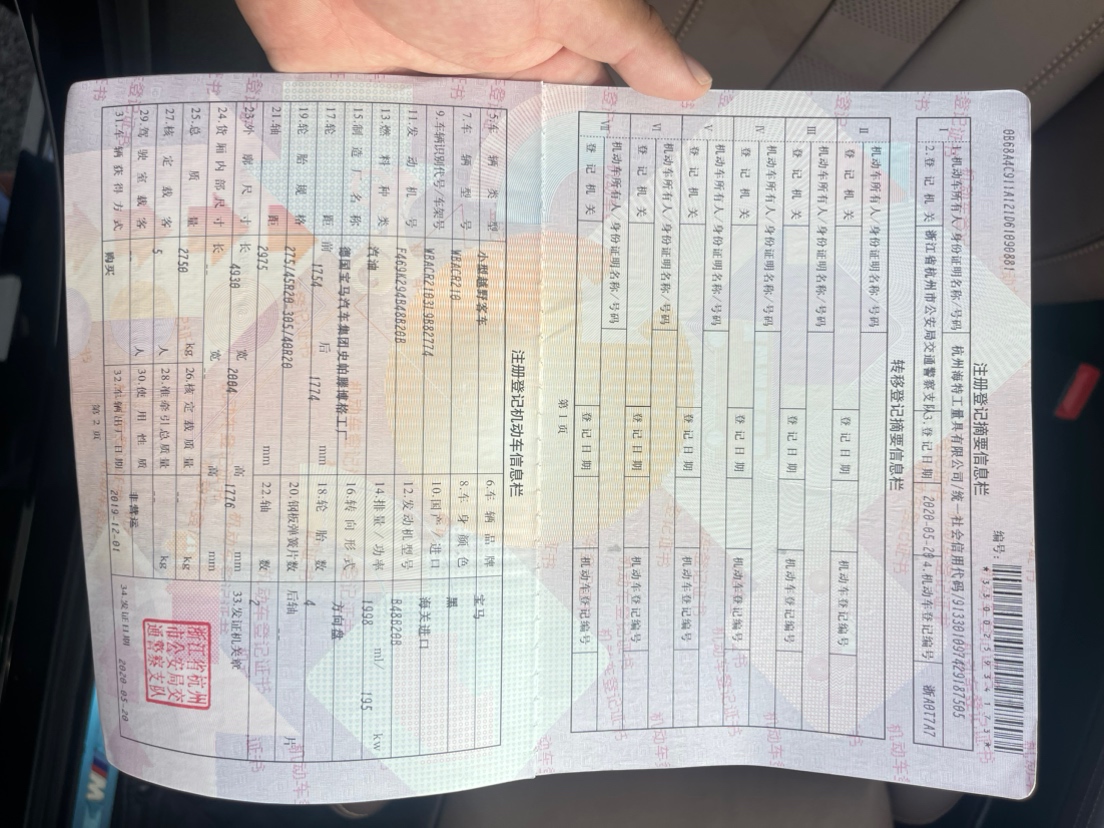 0B68A4C911A121D61090881
编号:
注册登记摘要信息栏
I
1.机动车所有人/身份证明名称/号码 杭州海特工量具有限公司/统一社会信用代码/913301097429187505
2.登记机关 浙江省杭州市公安局交通警察支队 3.登记日期 2020-05-20 4.机动车登记编号 浙A0T7A7
转移登记摘要信息栏
II 机动车所有人/身份证明名称/号码
登记机关 登记日期 机动车登记编号
III 机动车所有人/身份证明名称/号码
登记机关 登记日期 机动车登记编号
IV 机动车所有人/身份证明名称/号码
登记机关 登记日期 机动车登记编号
V 机动车所有人/身份证明名称/号码
登记机关 登记日期 机动车登记编号
VI 机动车所有人/身份证明名称/号码
登记机关 登记日期 机动车登记编号
VII 机动车所有人/身份证明名称/号码
登记机关 登记日期 机动车登记编号
第 1 页
注册登记机动车信息栏
5.车辆类型 小型越野客车 6.车辆品牌 宝马
7.车辆型号 WBACR210 8.车身颜色 黑
9.车辆识别代号/车架号 WBACR2103L9B82774 10.国产/进口 海关进口
11.发动机号 F469K294B48B20B 12.发动机型号 B48B20B
13.燃料种类 汽油 14.排量/功率 1998 ml/ 195 kw
15.制造厂名称 德国宝马汽车集团史帕滕博格工厂 16.转向形式 方向盘
17.轮距 前 1754 后 1774 mm 18.轮胎数 4
19.轮胎规格 275/45R20-305/40R20 20.钢板弹簧片数 后轴 片
21.轴距 2975 mm 22.轴数 2
23.外廓尺寸 长 4930 宽 2004 高 1776 mm 33.发证机关章
24.货厢内部尺寸 长 宽 高 mm
25.总质量 2750 kg 26.核定载质量 kg
27.核定载客 5 人 28.准牵引总质量 kg
29.驾驶室载客 人 30.使用性质 非营运
31.车辆获得方式 购买 32.车辆出厂日期 2019-12-01 34.发证日期 2020-05-20
浙江省杭州
市公安局交
通警察支队
第 2 页
M